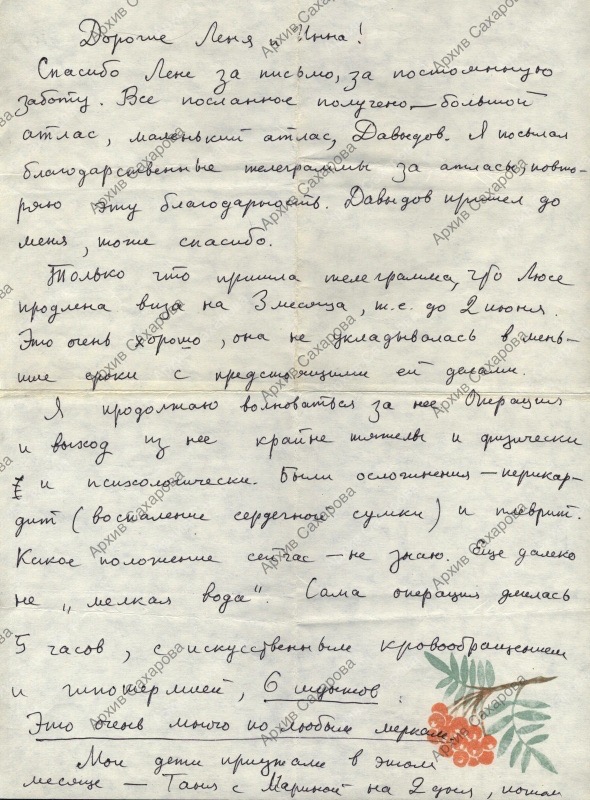 Дорогие Леня и Инна!
Спасибо Лене за письмо, за постоянную
заботу. Все посланное получено – большой
атлас, маленький атлас, Давыдов. Я посылал
благодарственные телеграммы за атласы, повто-
ряю эту благодарность. Давыдов пришел до
меня, тоже спасибо.
Только что пришла телеграмма, что Люсе
продлена виза на 3 месяца, т.е. до 2 июня.
Это очень хорошо, она не укладывалась в мень-
шие сроки с предстоящими ей делами.
Я продолжаю волноваться за нее. Операция
и выход из нее крайне тяжелы и физически
и психологически. Были осложнения – перикар-
дит (воспаление сердечной сумки) и плеврит.
Какое положение сейчас – не знаю. Еще далеко
не „мелкая вода". Сама операция длилась
5 часов, с искусственным кровообращением
и гипотермией, 6 шунтов.
Это очень много по любым меркам.
Мои дети приезжали в этом
месяце – Таня с Мариной на 2 дня, потом
Архив Сахарова
Архив Сахарова
Архив Сахарова
Архив Сахарова
Архив Сахарова
Архив Сахарова
Архив Сахарова
Архив Сахарова
Архив Сахарова
Архив Сахарова